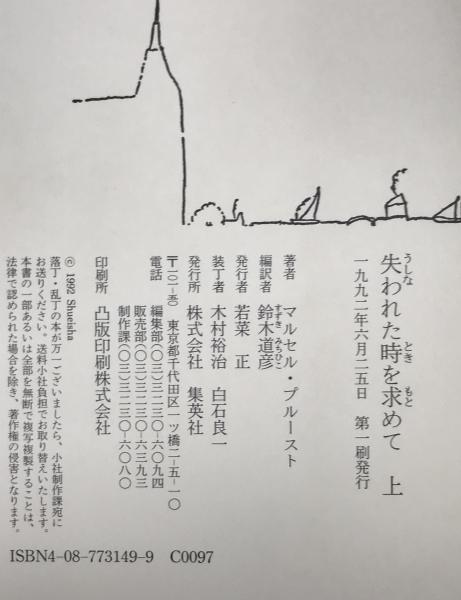 失われた時を求めて 上
うしな とき もと
一九九二年六月二五日 第一刷発行
著者 マルセル・プルースト
編訳者 鈴木道彦
すずき みちひこ
発行者 若菜 正
装丁者 木村裕治 白石良一
発行所 株式会社 集英社
〒一〇一-五〇 東京都千代田区一ッ橋二-五-一〇
電話 編集部(〇三)三二三〇-六〇九四
販売部(〇三)三二三〇-六三九三
制作課(〇三)三二三〇-六〇八〇
印刷所 凸版印刷株式会社
© 1992 Shueisha
落丁・乱丁の本が万一ございましたら、小社制作課宛に
お送りください。送料小社負担でお取り替えいたします。
本書の一部あるいは全部を無断で複写複製することは、
法律で認められた場合を除き、著作権の侵害となります。
ISBN4-08-773149-9 C0097